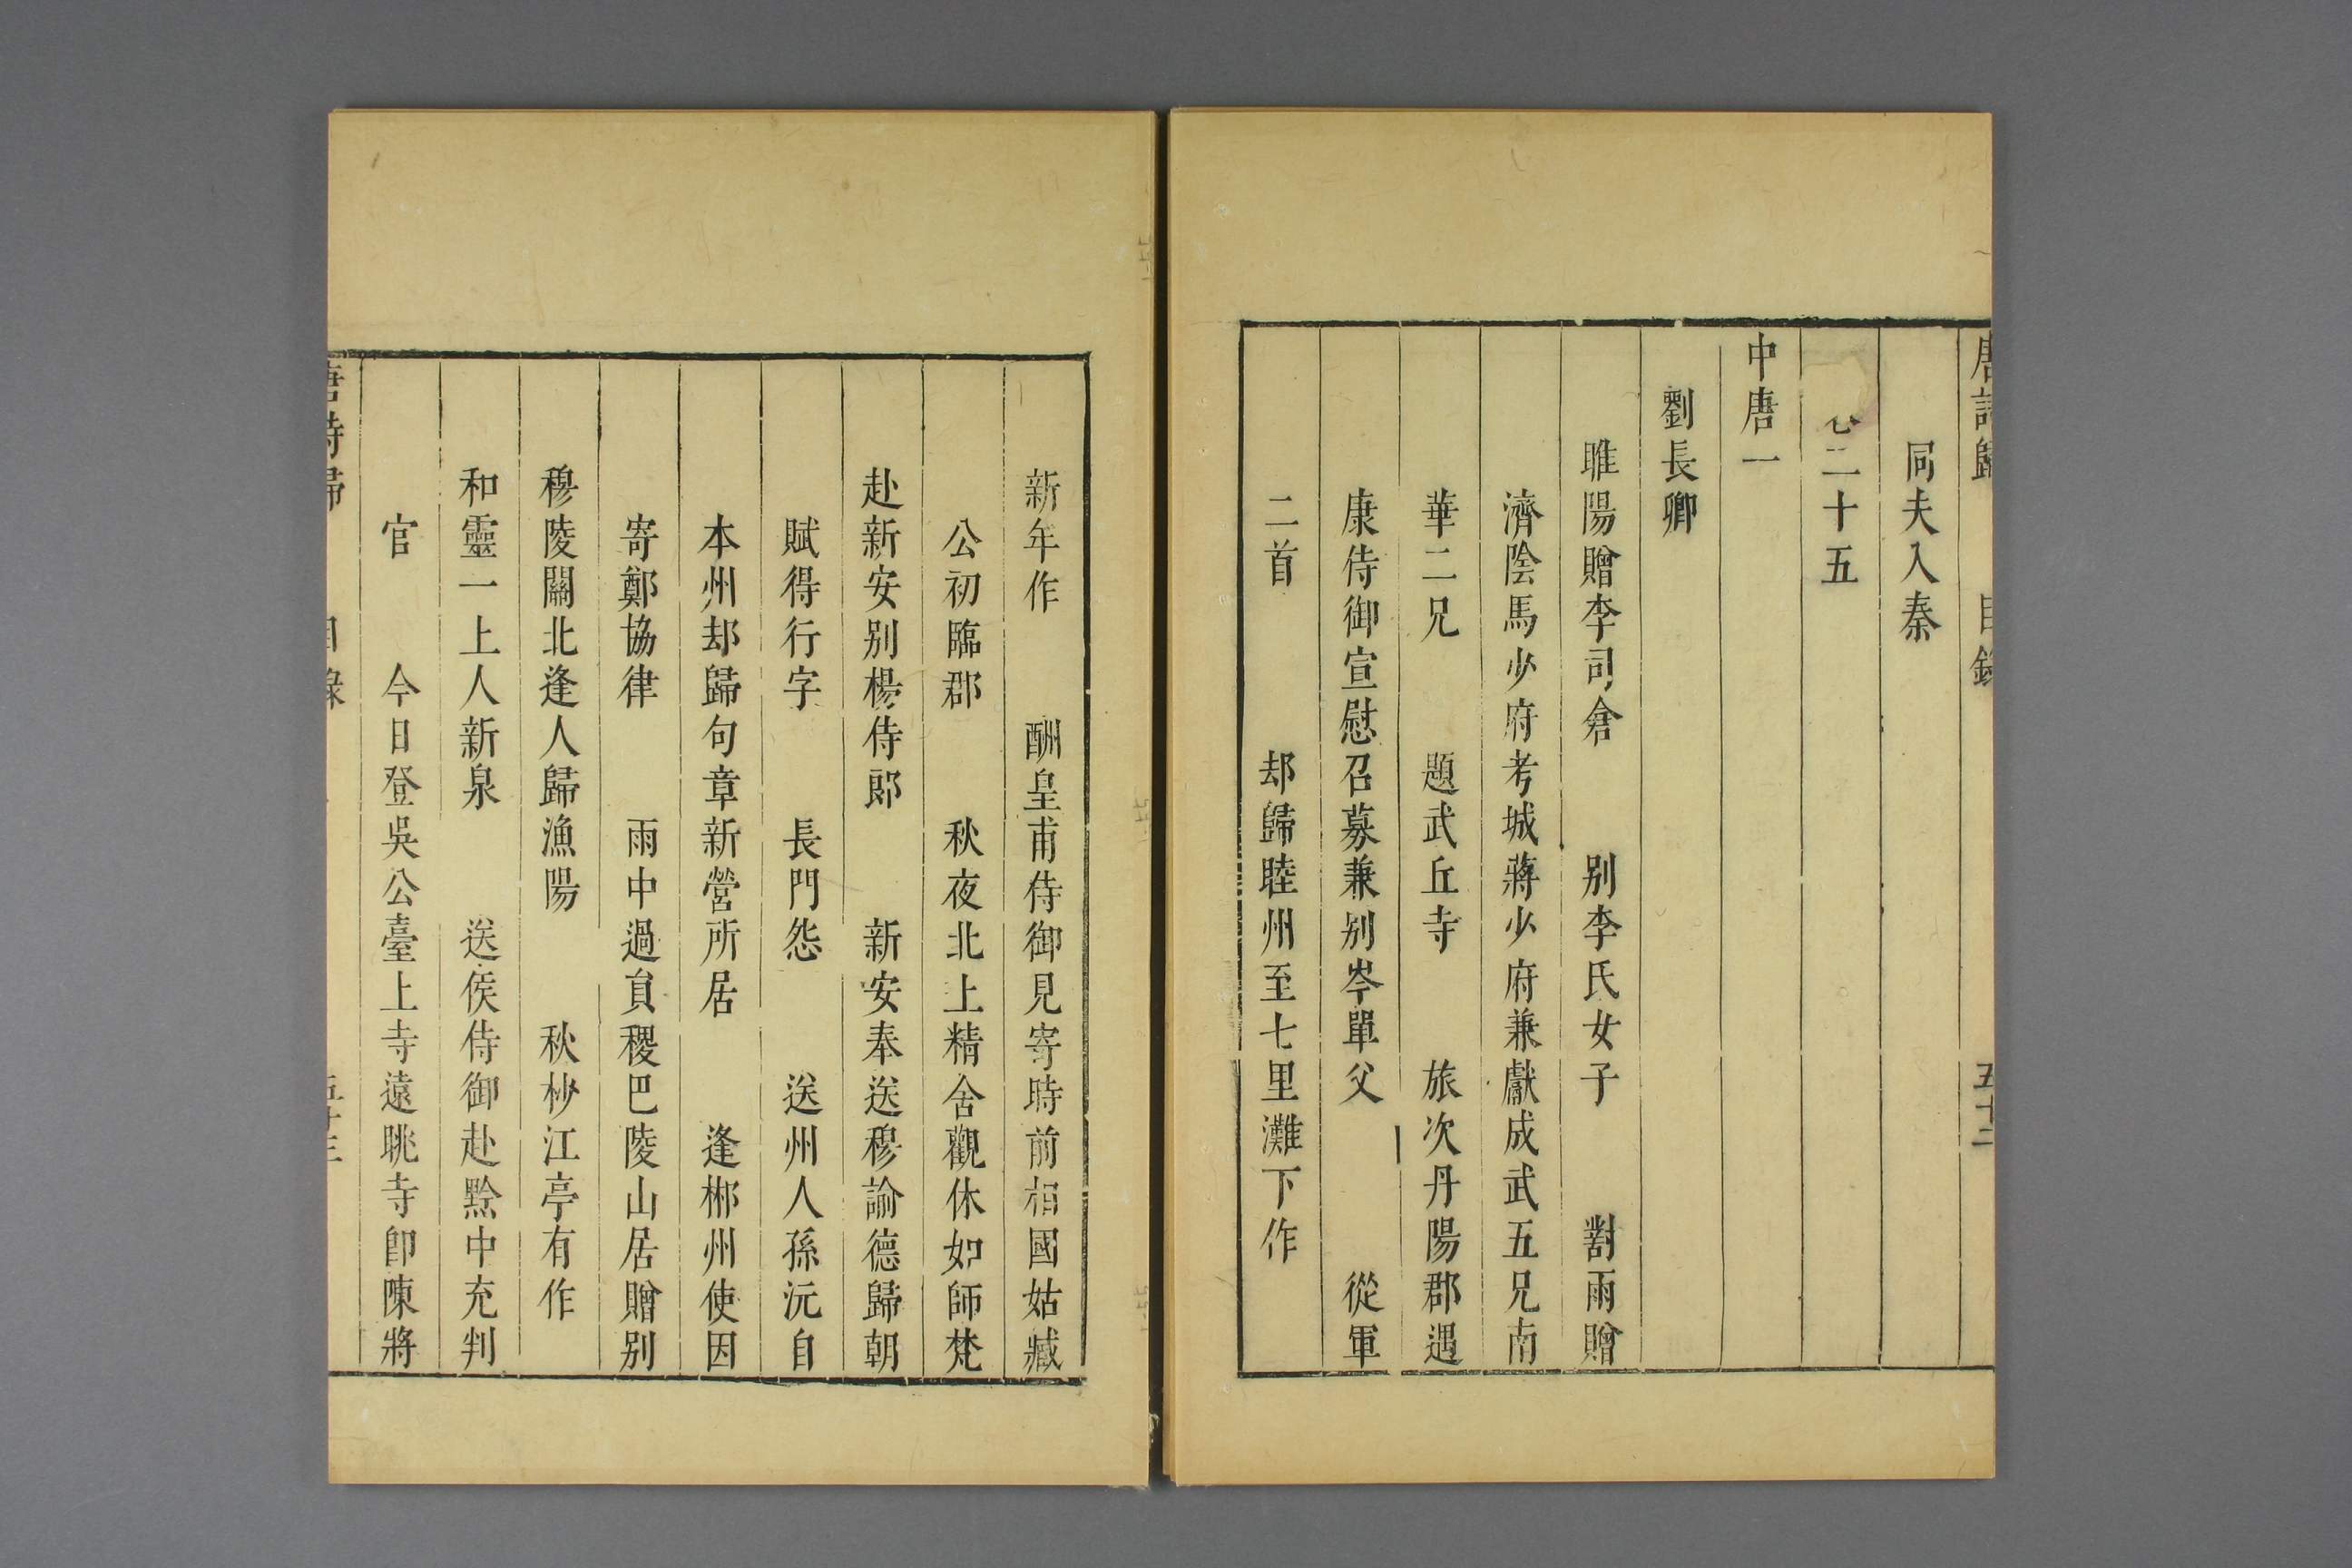 唐詩歸 目錄 五十二
同夫入秦
二十五
中唐一
劉長卿
睢陽贈李司倉 别李氏女子 對雨贈
濟陰馬少府考城蔣少府兼獻成武五兄南
華二兄 題武丘寺 旅次丹陽郡遇
康侍御宣慰召募兼别岑單父 從軍
二首 却歸睦州至七里灘下作
新年作 酬皇甫侍御見寄時前相國姑臧
公初臨郡 秋夜北上精舍觀休如師梵
赴新安别楊侍郎 新安奉送穆諭德歸朝
賦得行字 長門怨 送州人孫沅自
本州却歸句章新營所居 逢郴州使因
寄鄭協律 雨中過員稷巴陵山居贈别
穆陵關北逢人歸漁陽 秋杪江亭有作
和靈一上人新泉 送侯侍御赴黔中充判
官 今日登吳公臺上寺遠眺寺卽陳將
唐詩歸 目錄 五十三